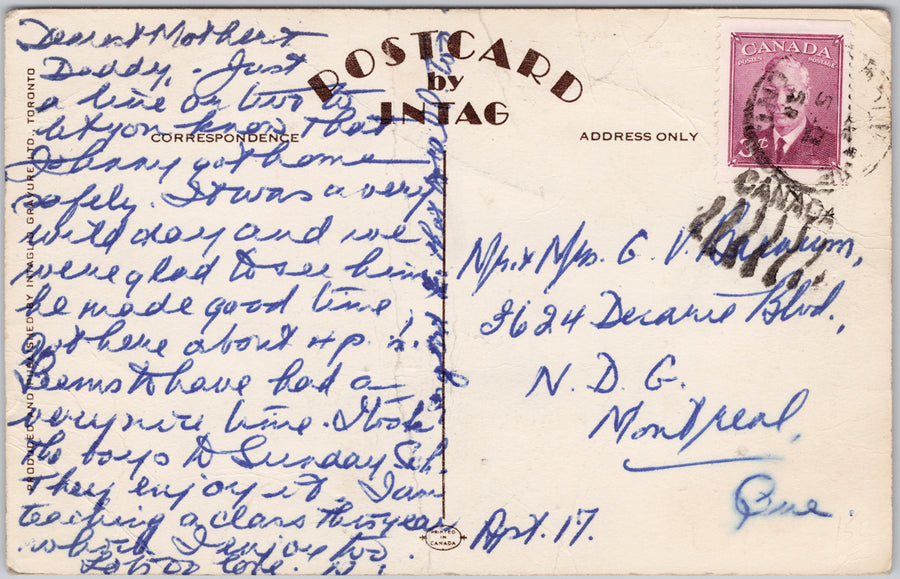 POSTCARD
by
INTAG
CORRESPONDENCE
ADDRESS ONLY
Dearest Mother &
Daddy, - Just
a line or two to
let you know that
Johnny got home
safely. It was a very
wild day and we
were glad to see him
he made good time
got here about 4 p.
Seems to have had a
very nice time. I took
the boys to Sunday Sch
They enjoy it. I am
teaching a class this year
which I enjoy too.
Lots of love.
CANADA
POSTES POSTAGE
3¢
CANADA
Mr. & Mrs. G. V.
3624 Decarie Blvd.,
N. D. G.
Montreal,
Que
Apt. 17.
PRINTED
IN
CANADA
PRODUCED AND PUBLISHED BY INTAGLIO GRAVURE LTD., TORONTO